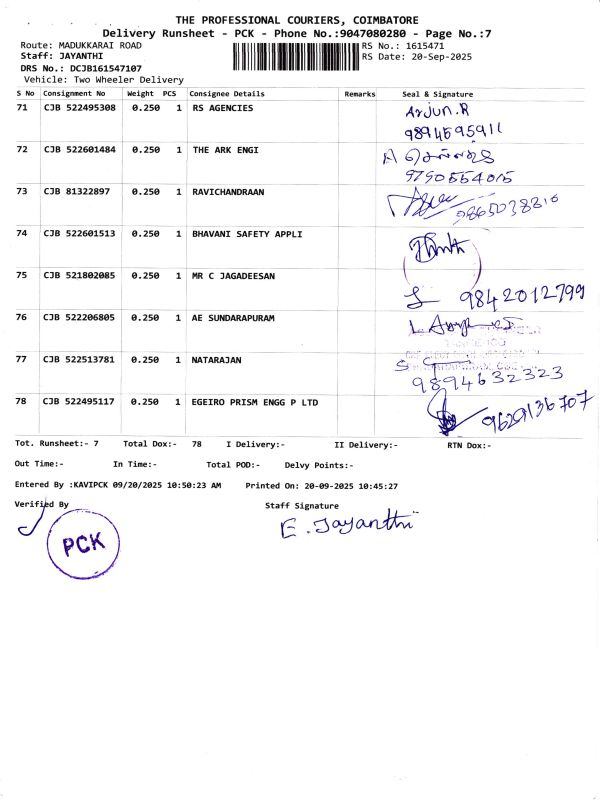 THE PROFESSIONAL COURIERS, COIMBATORE
Delivery Runsheet - PCK - Phone No.:9047080280 - Page No.:7
Route: MADUKKARAI ROAD RS No.: 1615471
Staff: JAYANTHI RS Date: 20-Sep-2025
DRS No.: DCJB161547107
Vehicle: Two Wheeler Delivery
S No Consignment No Weight PCS Consignee Details Remarks Seal & Signature
71 CJB 522495308 0.250 1 RS AGENCIES Arjun.R
9894595911
72 CJB 522601484 0.250 1 THE ARK ENGI
9790554015
73 CJB 81322897 0.250 1 RAVICHANDRAAN
9865038816
74 CJB 522601513 0.250 1 BHAVANI SAFETY APPLI
75 CJB 521802085 0.250 1 MR C JAGADEESAN
9842012799
76 CJB 522206805 0.250 1 AE SUNDARAPURAM
77 CJB 522513781 0.250 1 NATARAJAN
9894632323
78 CJB 522495117 0.250 1 EGEIRO PRISM ENGG P LTD
9629136707
Tot. Runsheet:- 7 Total Dox:- 78 I Delivery:- II Delivery:- RTN Dox:-
Out Time:- In Time:- Total POD:- Delvy Points:-
Entered By :KAVIPCK 09/20/2025 10:50:23 AM Printed On: 20-09-2025 10:45:27
Verified By Staff Signature
E. Jayanthi
PCK